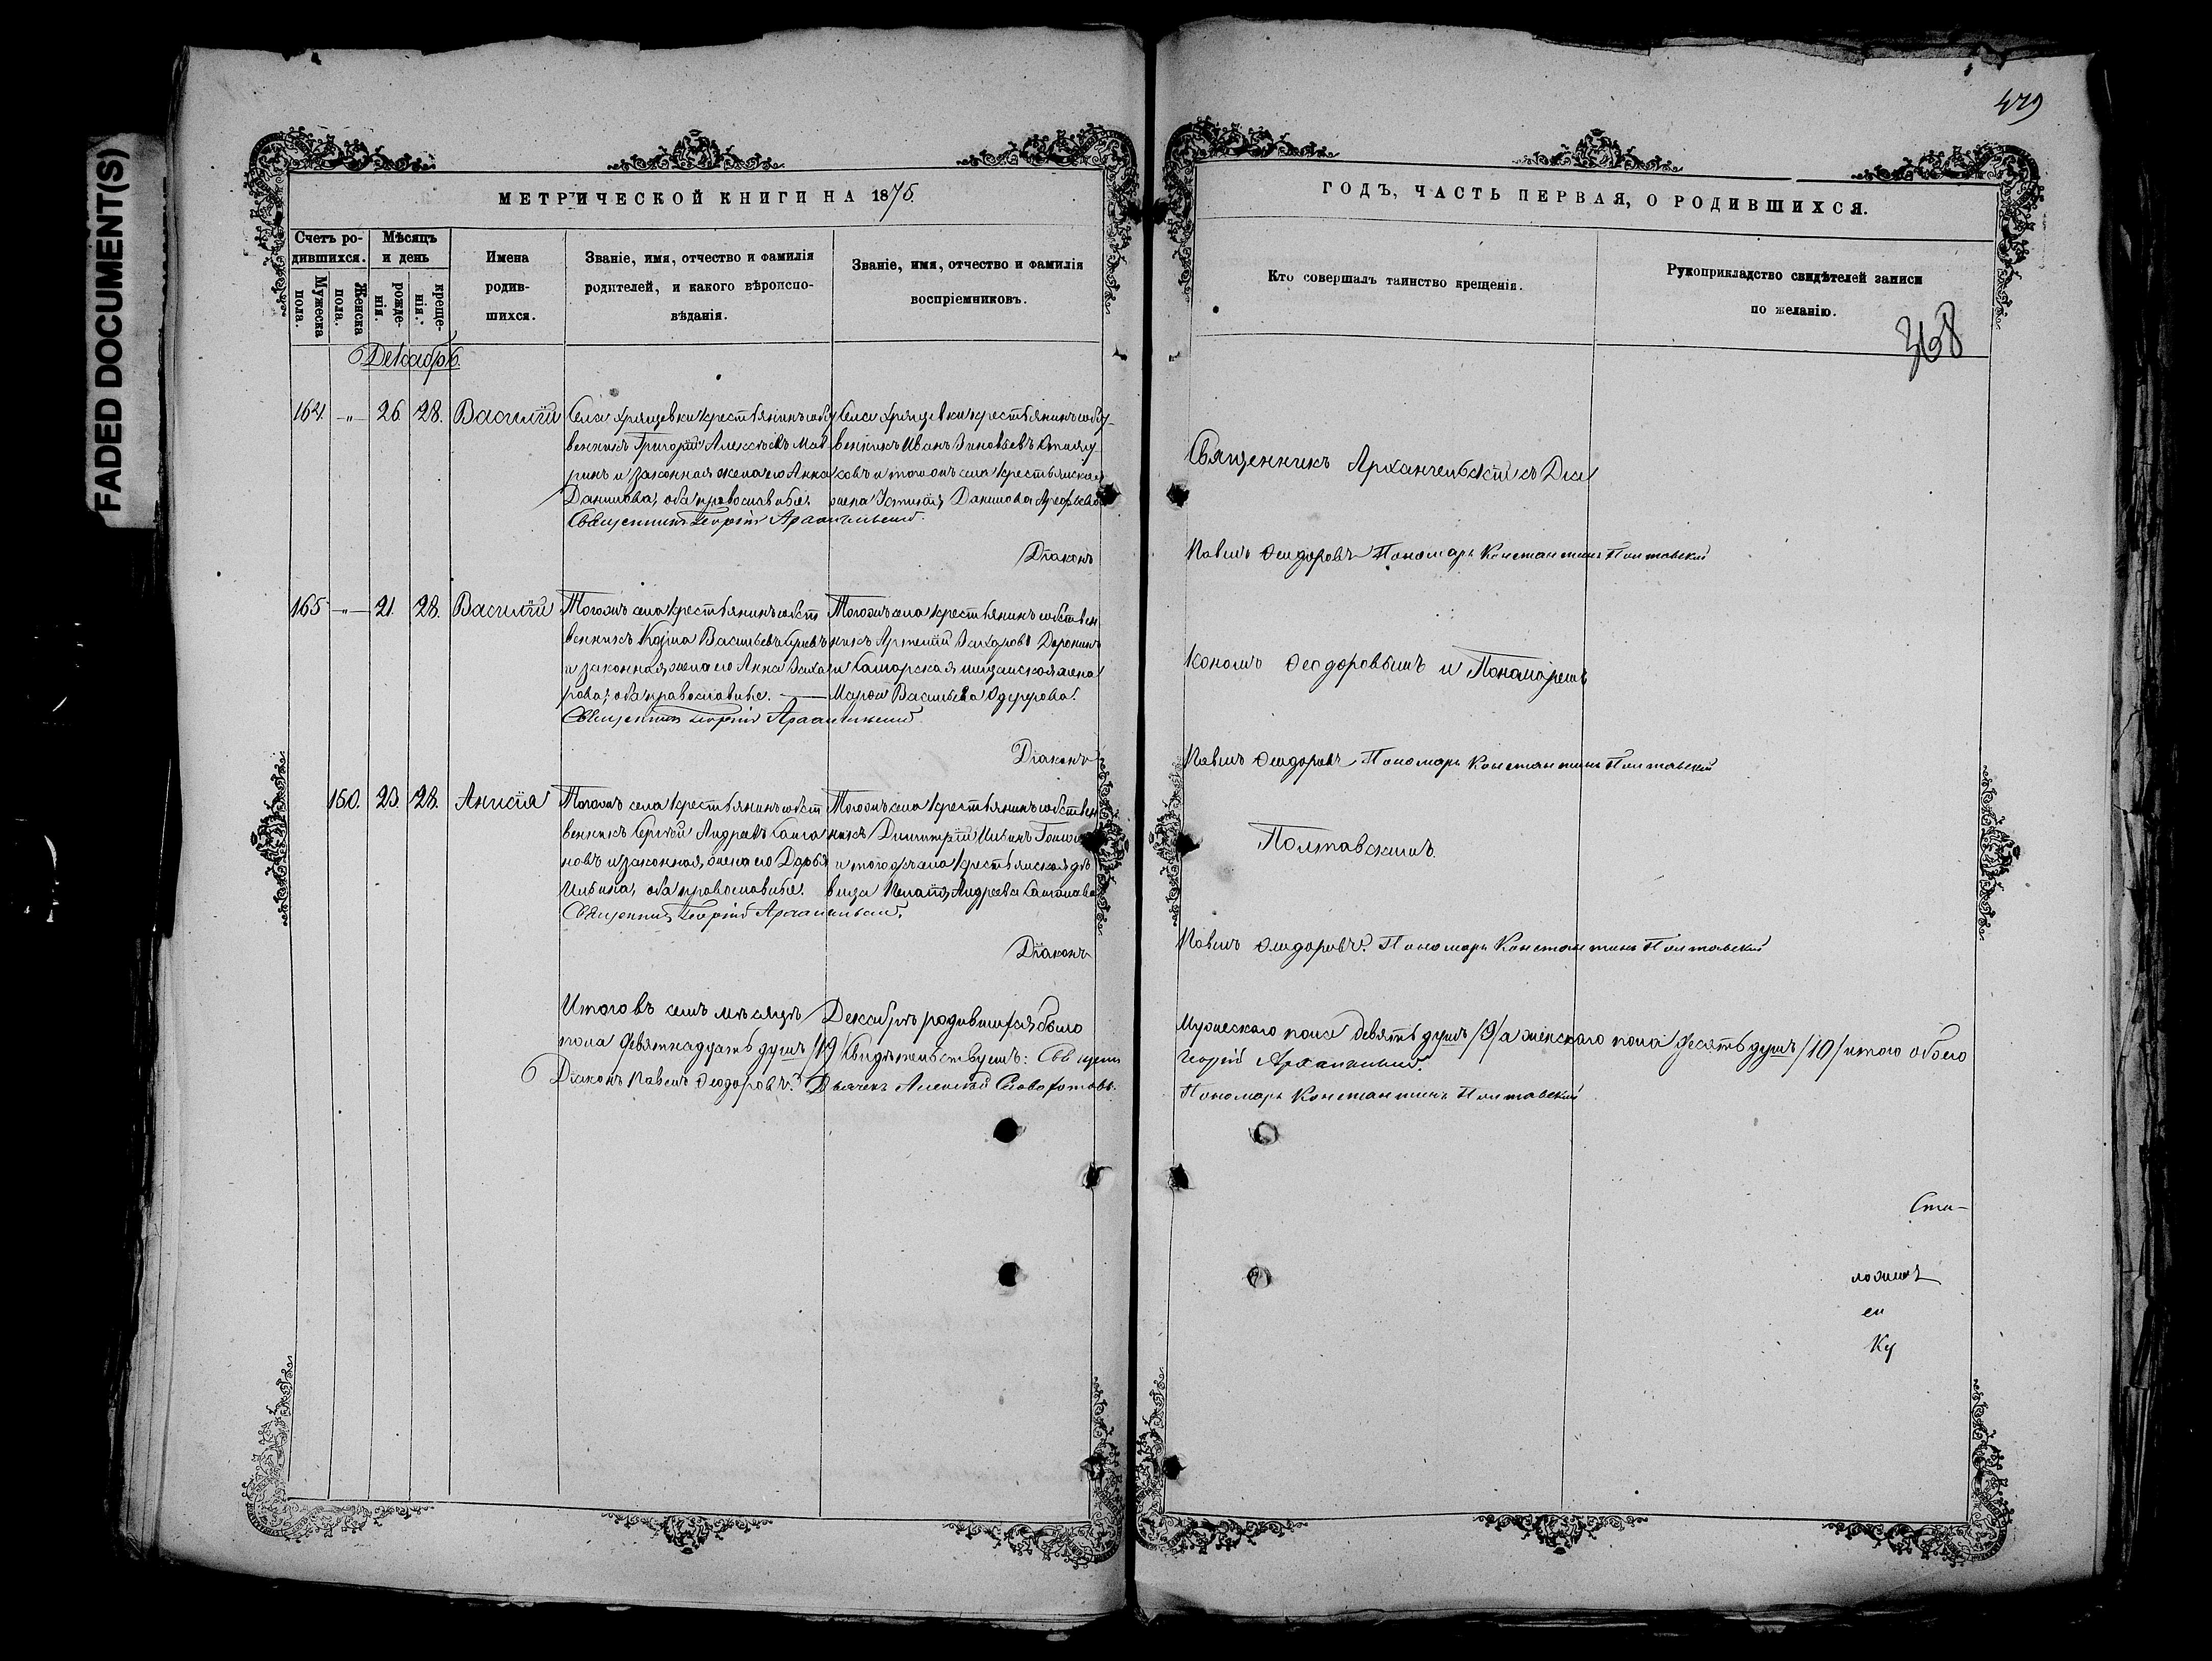 FADED DOCUMENT(S)
429
МЕТРИЧЕСКОЙ КНИГИ НА 1875.
ГОДЪ, ЧАСТЬ ПЕРВАЯ, О РОДИВШИХСЯ.
Счетъ ро-
дившихся.
Мужеска
пола.
Женска
пола.
Мѣсяцъ
и день
рожде-
нія.
креще-
нія.
Имена
родив-
шихся.
Званіе, имя, отчество и фамилія
родителей, и какого вѣроиспо-
вѣданія.
Званіе, имя, отчество и фамилія
воспріемниковъ.
Кто совершалъ таинство крещенія.
Рукоприкладство свидѣтелей записи
по желанію.
368
Декабрь.
164 -"- 26 28. Василій
Села Хрящевки крестьянинъ собс
венникъ Григорій Алексѣевъ
и законная жена его Анна
Данилова, оба православные.
Села Хрящевки крестьянинъ собс-
венникъ Иванъ Зиновьевъ
и тогожъ села крестьянская
жена Устинія Данилова
Священникъ Георгій Архангельскій.
Священникъ Архангельскій съ Діа
Діаконъ Павелъ Ѳеодоровъ Пономарь Константинъ Полтавскій
165 -"- 21. 28. Василій
Тогожъ села крестьянинъ собст
венникъ Козма Васильевъ
и законная жена его Анна Заха
рова, оба православные.
Тогожъ села крестьянинъ собствен
никъ Артемій Захаровъ Доронинъ
и Самарская мещанская жена
Марѳа Васильева
Священникъ Георгій Архангельскій.
кономъ Ѳеодоровымъ и Пономаремъ
Діаконъ Павелъ Ѳеодоровъ Пономарь Константинъ Полтавскій
150. 23. 28. Анисія
Тогожъ села крестьянинъ собст
венникъ Сергѣй Андреевъ
новъ и законная жена его Дарья
Ильина, оба православные.
Тогожъ села крестьянинъ собствен
никъ Димитрій Ильинъ
и тогожъ села крестьянская дѣ
вица Пелагія Андреева
Священникъ Георгій Архангельскій.
Полтавскимъ.
Діаконъ Павелъ Ѳеодоровъ. Пономарь Константинъ Полтавскій
Итого въ семъ мѣсяцѣ Декабрѣ родившихся было Мужескаго пола девять душъ /9/ а женскаго пола десять душъ /10/ итого обоего
пола девятнадцать душъ /19/ Свидѣтельствуемъ: Священ Георгій Архангельскій.
Діаконъ Павелъ Ѳеодоровъ. Дьячекъ Алексѣй Пономарь Константинъ Полтавскій
Ста-
ложилъ
ея
Ку